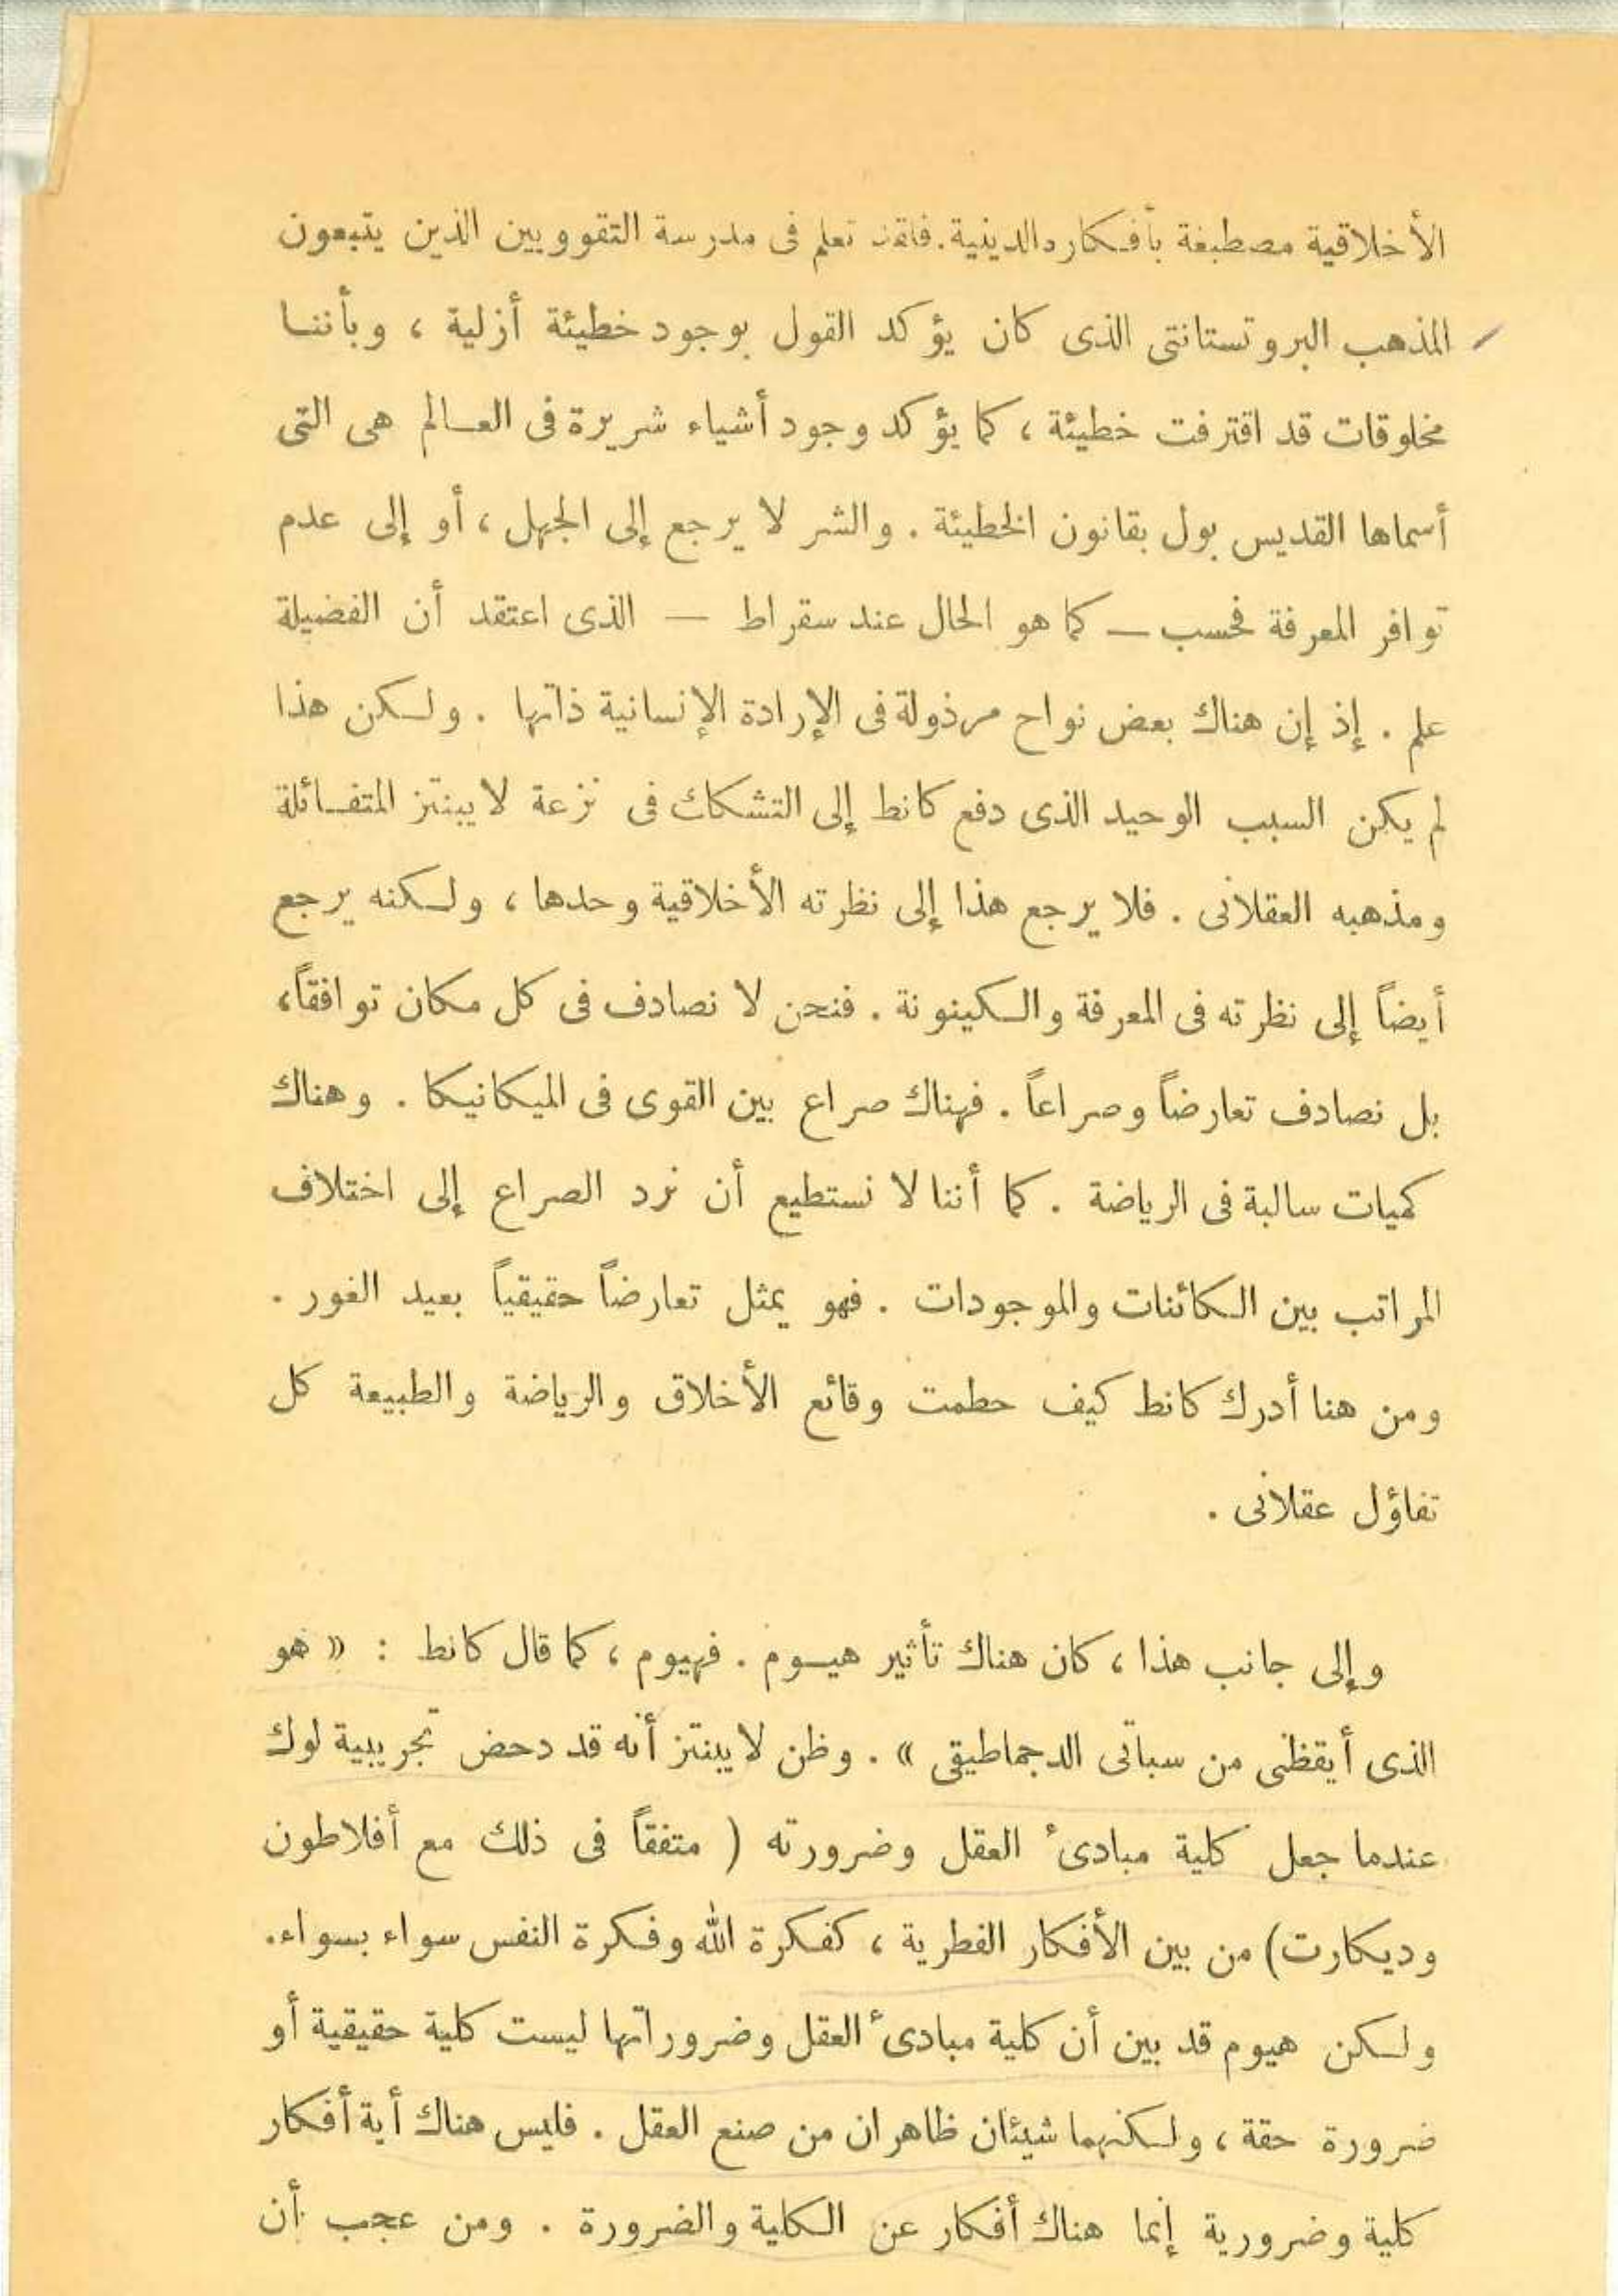 الأخلاقية مصطبغة بأفكاره الدينية. فلقد تعلم فى مدرسة التقوويين الذين يتبعون
المذهب البروتستانتى الذى كان يؤكد القول بوجود خطيئة أزلية ، وبأننا
مخلوقات قد اقترفت خطيئة ، كما يؤكد وجود أشياء شريرة فى العالم هى التى
أسماها القديس بول بقانون الخطيئة . والشر لا يرجع إلى الجهل ، أو إلى عدم
توافر المعرفة فحسب — كما هو الحال عند سقراط — الذى اعتقد أن الفضيلة
علم . إذ إن هناك بعض نواح مرذولة فى الإرادة الإنسانية ذاتها . ولكن هذا
لم يكن السبب الوحيد الذى دفع كانط إلى التشكك فى نزعة لايبنتز المتفائلة
ومذهبه العقلانى . فلا يرجع هذا إلى نظرته الأخلاقية وحدها ، ولكنه يرجع
أيضاً إلى نظرته فى المعرفة والكينونة . فنحن لا نصادف فى كل مكان توافقاً،
بل نصادف تعارضاً وصراعاً . فهناك صراع بين القوى فى الميكانيكا . وهناك
كميات سالبة فى الرياضة . كما أننا لا نستطيع أن نرد الصراع إلى اختلاف
المراتب بين الكائنات والموجودات . فهو يمثل تعارضاً حقيقياً بعيد الغور .
ومن هنا أدرك كانط كيف حطمت وقائع الأخلاق والرياضة والطبيعة كل
تفاؤل عقلانى .
وإلى جانب هذا ، كان هناك تأثير هيوم . فهيوم ، كما قال كانط : « هو
الذى أيقظنى من سباتى الدجماطيقى » . وظن لايبنتز أنه قد دحض تجريبية لوك
عندما جعل كلية مبادئ العقل وضرورته ( متفقاً فى ذلك مع أفلاطون
وديكارت) من بين الأفكار الفطرية ، كفكرة الله وفكرة النفس سواء بسواء.
ولكن هيوم قد بين أن كلية مبادئ العقل وضروراتها ليست كلية حقيقية أو
ضرورة حقة ، ولكنهما شيئان ظاهران من صنع العقل . فليس هناك أية أفكار
كلية وضرورية إنما هناك أفكار عن الكلية والضرورة . ومن عجب أن